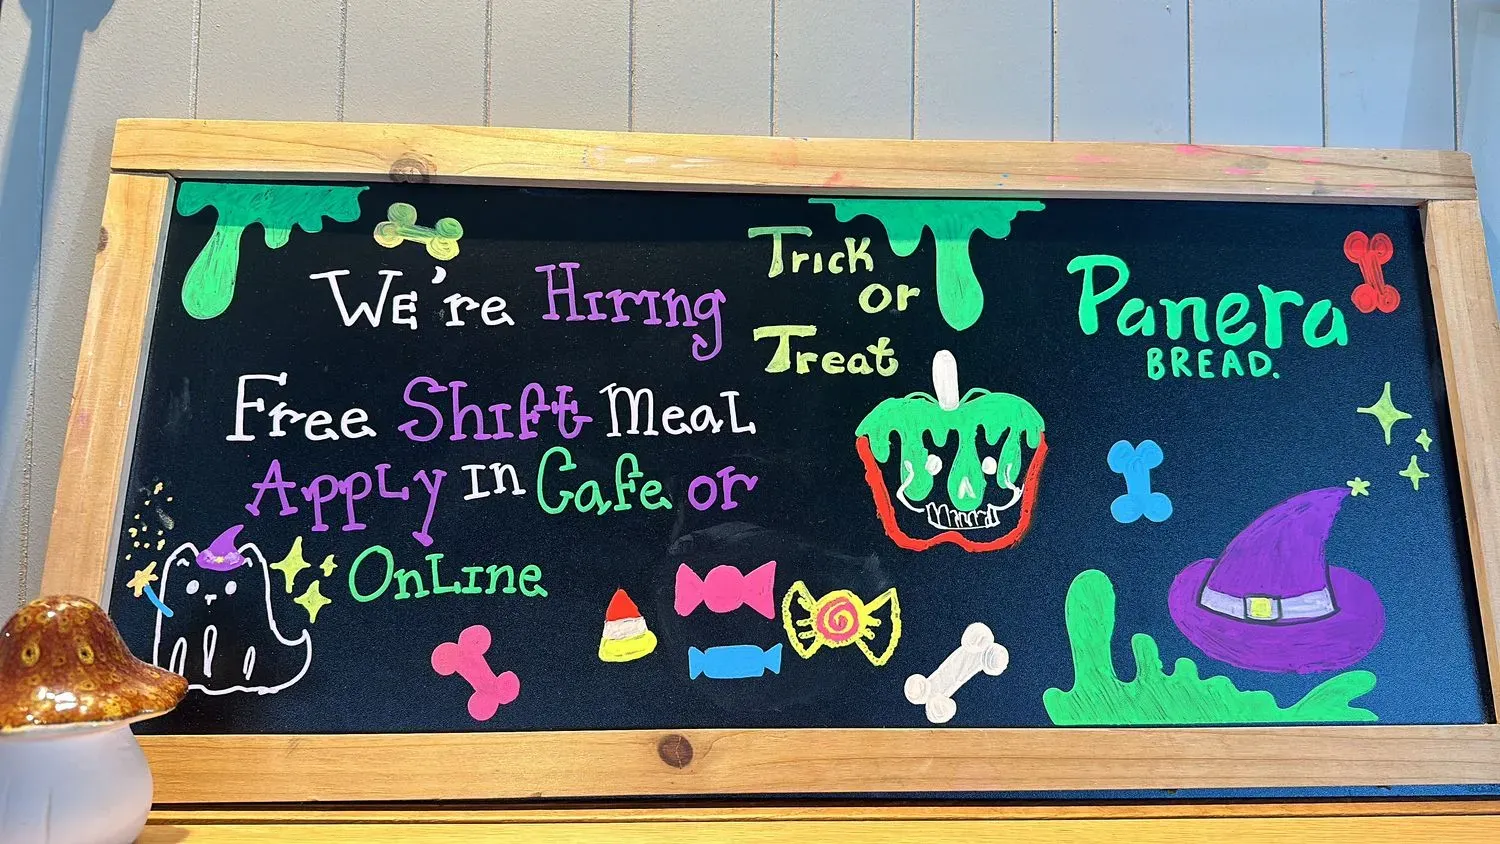 We're Hiring
Free Shift Meal
Apply in Cafe or
Online
Trick
or
Treat
Panera
BREAD.